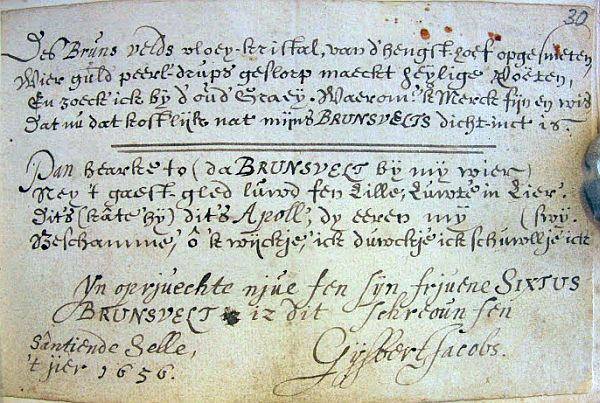 30
Des Bruns velds vloey-kristal, van d'hengst-hoef opgesmeten,
Wier guld peerl-drups geslorp maeckt heylige Poëten,
En zoeck ick by d'oud Graey. Waerom? 'k Merck fijn en wis
Dat nu dat kostlijk nat mijns BRUNSVELTS dicht-inct is.
Pan hearke to (da BRUNSVELT by my wier)
Ney 't gaest-gled luwd fen Lille, Luwte in Lier.
Dit's (kâte hy) dit's Apoll; dy eeren my (swy.
Beschamme, ô 'k wijckje, ick duwckje ick schuwllje ick
Yn oprjuechte njue fen sijn frjuene SIXTUS
BRUNSVELT iz dit schreoun fen
Sântiende Selle, Gysbert Jacobs.
't jier 1656.